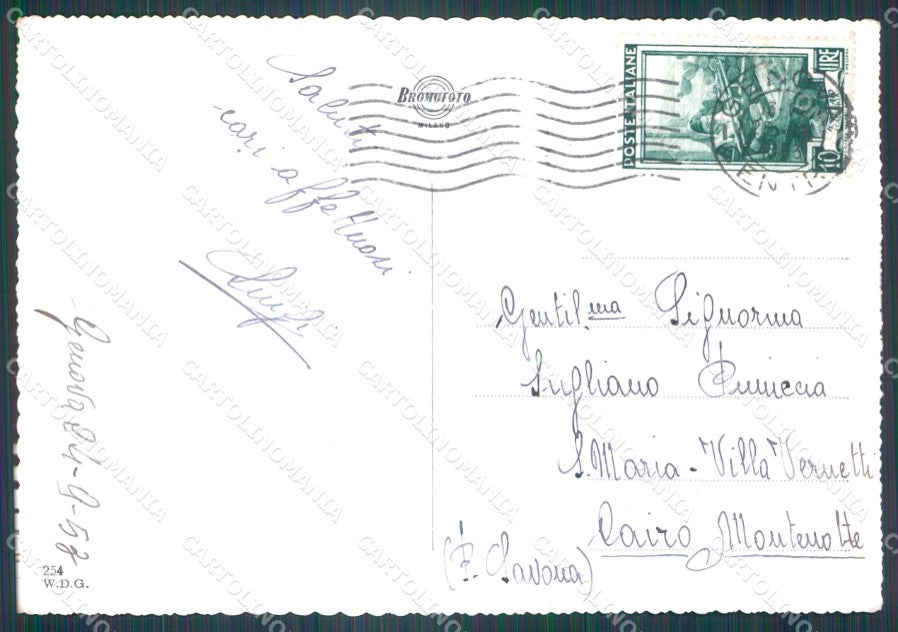 Saluti
cari affettuosi
Luigi
Genova 24-9-52
254
W.D.G.
BROMOFOTO
MILANO
POSTE ITALIANE
LIRE
10
Gentil.ma Signorina
Sugliano
S. Maria - Villa Vernetti
Cairo Montenotte
(P. Savona)
CARTOLINOMANIA